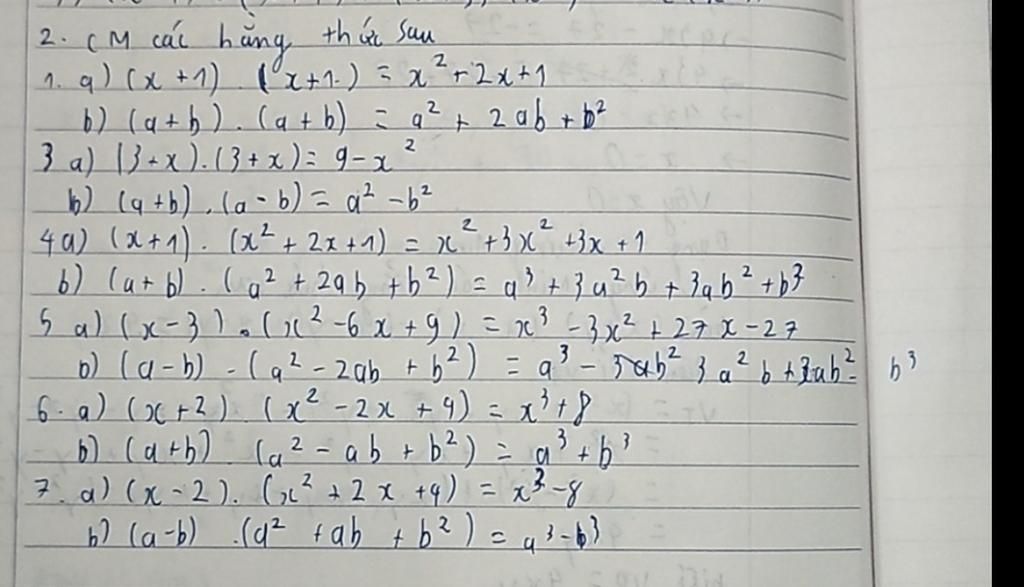 2. CM các hằng thức sau
1. a) (x + 1) . (x + 1) = x² + 2x + 1
b) (a + b) . (a + b) = a² + 2ab + b²
3 a) (3 - x) . (3 + x) = 9 - x²
b) (a + b) . (a - b) = a² - b²
4 a) (x + 1) . (x² + 2x + 1) = x² + 3x² + 3x + 1
b) (a + b) . (a² + 2ab + b²) = a³ + 3a²b + 3ab² + b³
5 a) (x - 3) . (x² - 6x + 9) = x³ - 3x² + 27x - 27
b) (a - b) - (a² - 2ab + b²) = a³ - 3ab² 3a²b + 3ab² - b³
6. a) (x + 2) (x² - 2x + 4) = x³ + 8
b) (a + b) . (a² - ab + b²) = a³ + b³
7. a) (x - 2) . (x² + 2x + 4) = x³ - 8
b) (a - b) . (a² + ab + b²) = a³ - b³